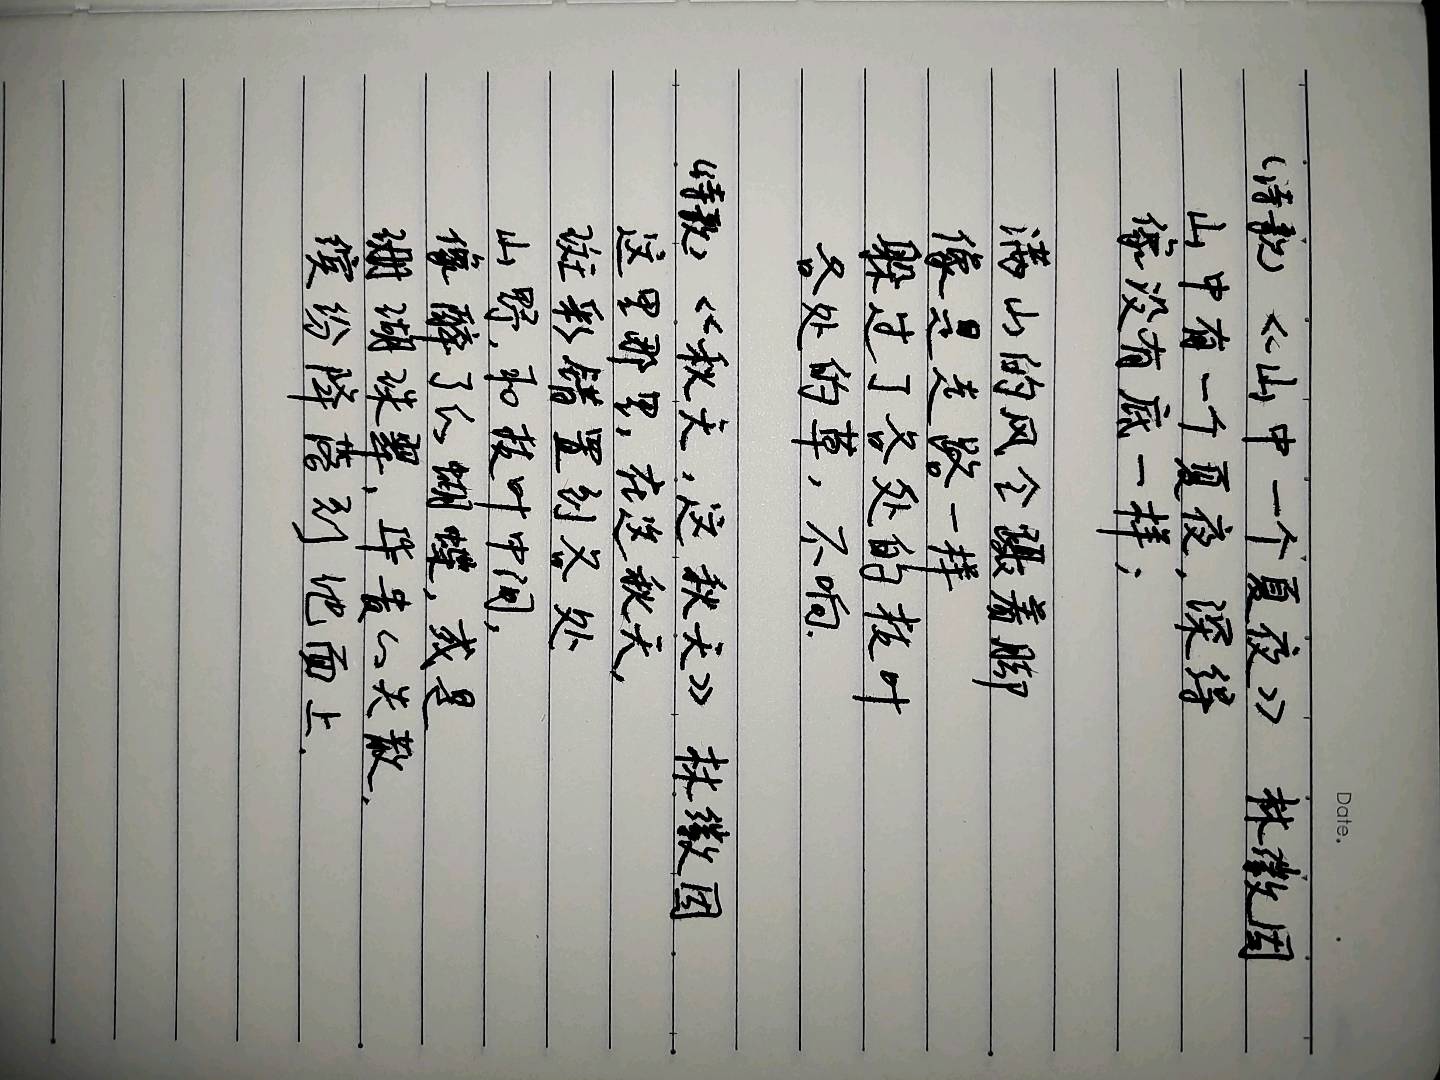 Date.
(诗歌) 《山中一个夏夜》 林徽因
山中有一个夏夜，深得
像没有底一样；
满山的风全蹑着脚
像是走路一样
躲过了各处的枝叶
各处的草，不响.
(诗歌) 《秋天，这秋天》 林徽因
这里那里，在这秋天，
斑彩错置到各处
山野，和枝叶中间，
像醉了的蝴蝶，或是
珊瑚珠翠，华贵的失散，
缤纷降落到地面上.